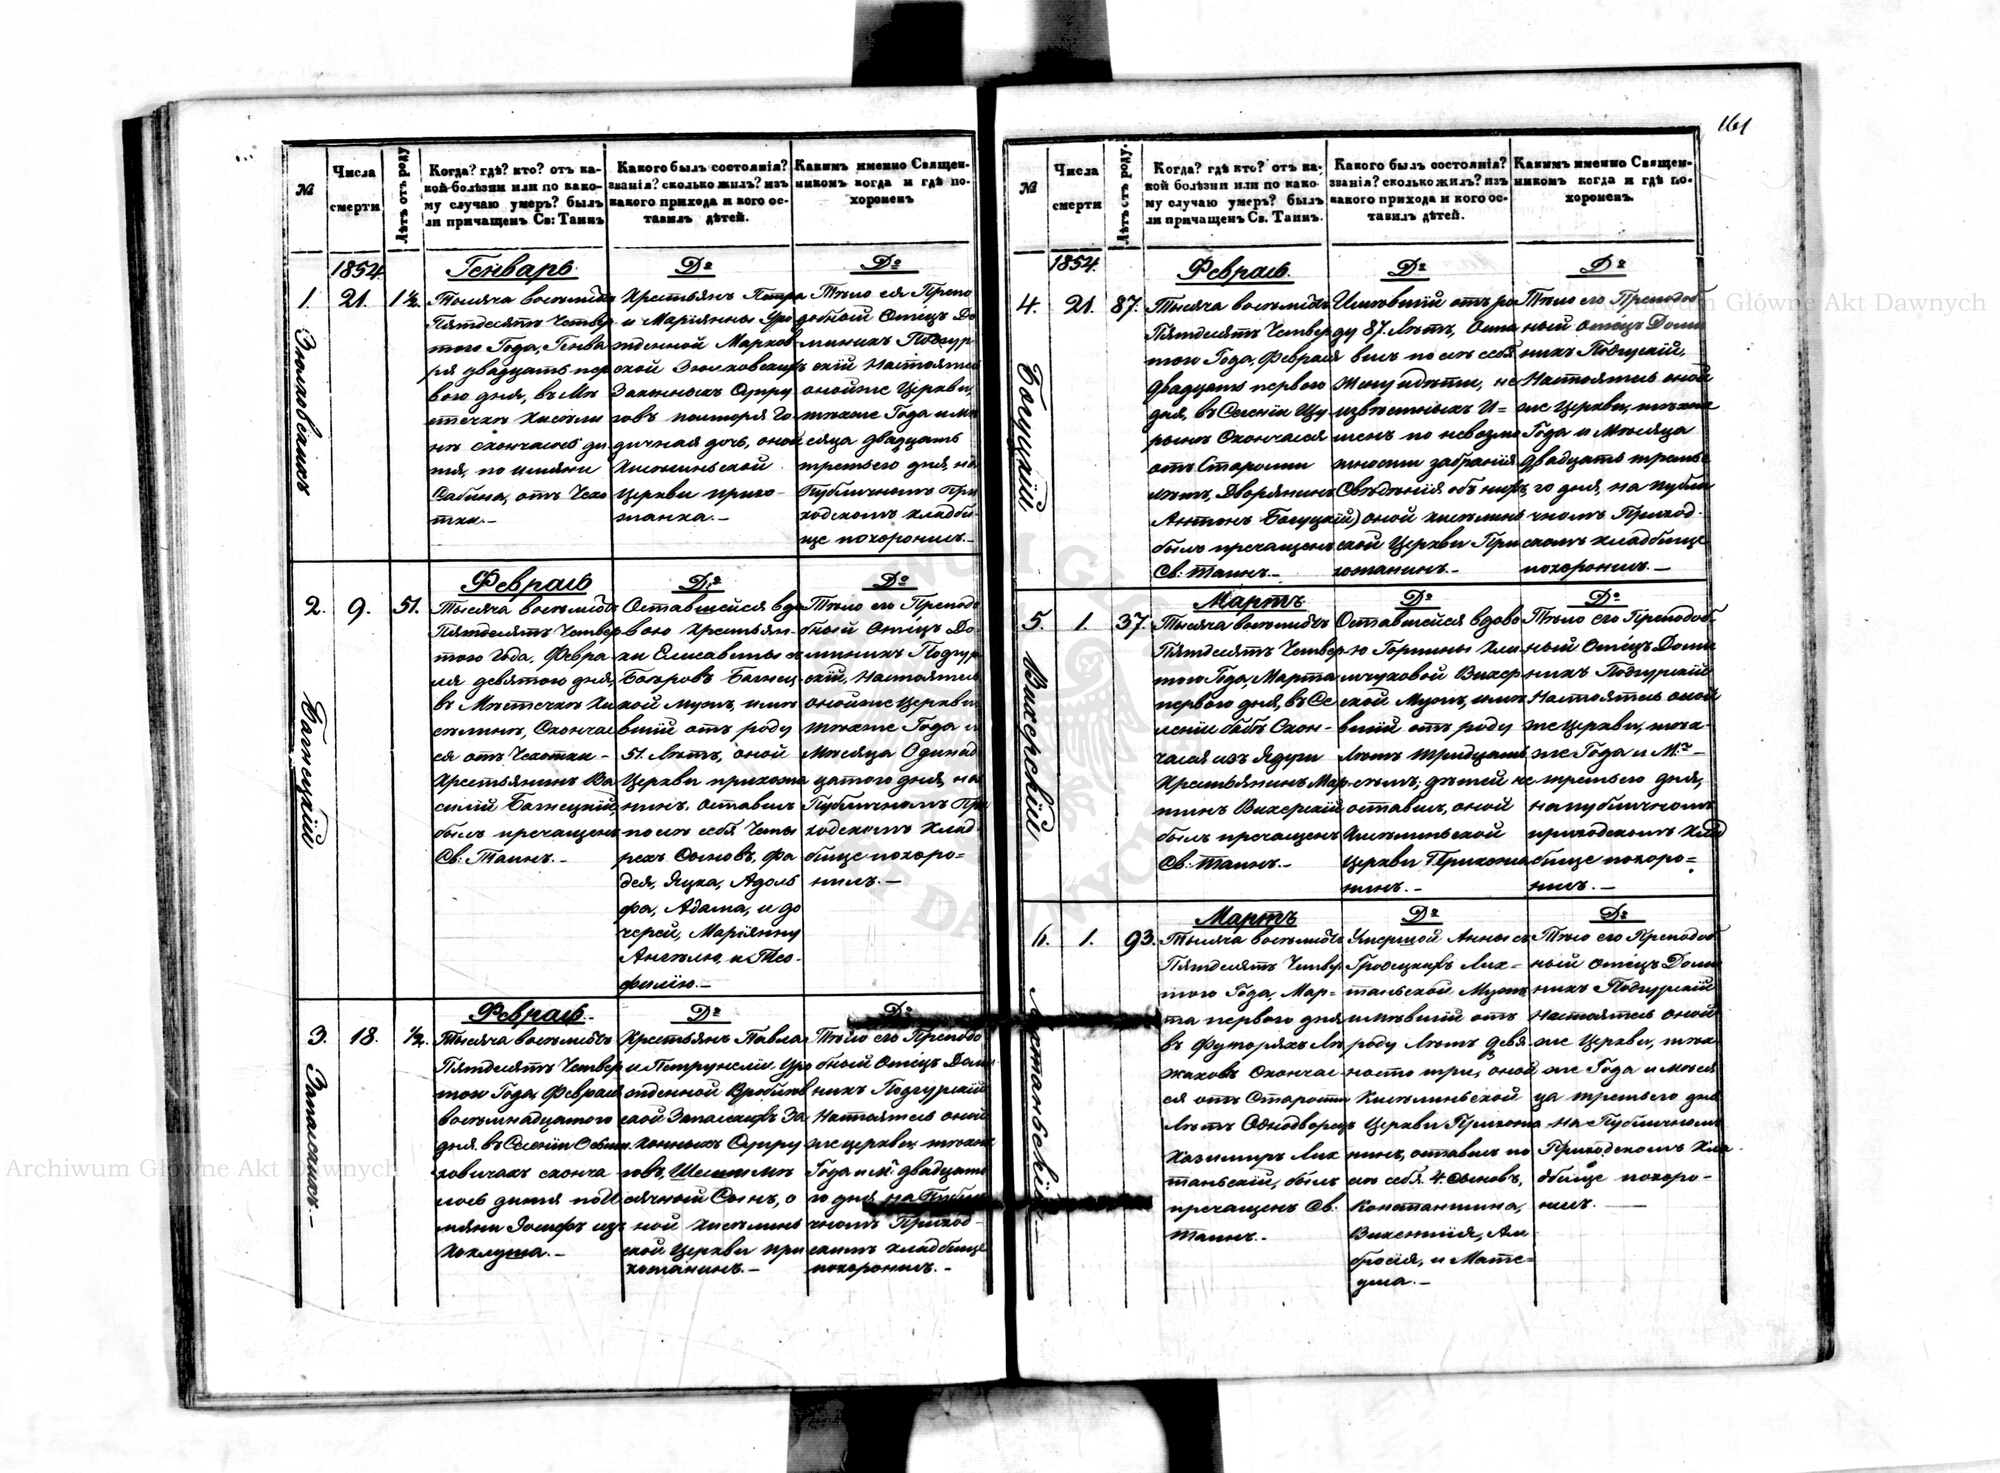 161
№
Числа
смерти
Лѣтъ отъ роду
Когда? гдѣ? кто? отъ ка-
кой болѣзни или по како-
му случаю умеръ? былъ
ли причащенъ Св: Таинъ
Какого былъ состоянія?
званія? сколько жилъ? изъ
какого прихода и кого ос-
тавилъ дѣтей.
Какимъ именно Священ-
никомъ когда и гдѣ по-
хороненъ
1854.
Генварь
Dº
Dº
1.
21.
1½
Тысяча восемьсотъ
Пятдесятъ Четвер
того Года, Генва
ря двадцать пер
вого дня, въ Мѣ
стечкѣ
скончалась ди
тя, по имяни
Сабина, отъ Чахо
тки.-
Крестьянъ Петра
и Маріянны уро
жденной Марков
ской
Законныхъ Супру
говъ полтора го
дичная дочь, оной
Церкви прихо-
жанка.-
Тѣло ея Препо
добный Отецъ До
миникъ Подгур
скій Настоятель
онойже Церкви,
тогоже Года и мѣ
сяца двадцать
третьего дня, на
Публичномъ При
ходскомъ кладби
ще похоронилъ.-
Февраль
Dº
Dº
2.
9.
51.
Тысяча восемьсотъ
Пятдесятъ Четвер
того Года, Февра
ля девятого дня,
въ Мѣстечкѣ
Скончал
ся отъ Чахотки -
Крестьянинъ Ва
силій
былъ пречащенъ
Св: Таинъ.-
Оставшейся вдо
вою Крестьян-
ки Елисаветы
кой мужъ, имѣ
вшій отъ роду
51. Лѣтъ, оной
Церкви прихожа
нинъ, оставилъ
послѣ себя Четы
рехъ Сыновъ, Фа
дея, Яцка, Адоль
фа, Адама, и до
черей, Маріянну
Ангелю, и Тео-
филію.-
Тѣло его Преподо
бный Отецъ До
миникъ Подгур
скій, Настоятель
онойже Церкви
тогоже Года и
Мѣсяца Одинад
цатого дня, на
Публичномъ При
ходскомъ Клад
бище похоро=
нилъ.-
Февраль
Dº
Dº
3.
18.
½
Тысяча восемьсотъ
Пятдесятъ Четвер
того Года, Февраля
восемнадцатого
дня, въ Селеніи
сконча
лось дитя по И
мяни Іосифъ изъ
Коклуша.-
Крестьянъ Павла
и Петрунели уро
жденной
За
конныхъ Супру
говъ, Шести мѣ
сячный Сынъ, о
ной
ской Церкви при
хожанинъ.-
Тѣло его Преподо
бный Отецъ Доми
никъ Подгурскій
Настоятель оной
же церкви, тогоже
Года и Мца двадцато
го дня на Публи
чномъ Приход-
скомъ кладбище
похоронилъ.-
№
Числа
смерти
Лѣтъ отъ роду.
Когда? гдѣ кто? отъ ка-
кой болѣзни или по како-
му случаю умеръ? былъ
ли причащенъ Св. Таинъ.
Какого былъ состоянія?
званія? сколько жилъ? изъ
какого прихода и кого ос-
тавилъ дѣтей.
Какимъ именно Священ-
никомъ когда и гдѣ по-
хороненъ.
1854.
Февраль.
Dº
Dº
4.
21.
87.
Богуцкій
Тысяча восемьсотъ
Пятдесятъ Четвер
того Года, Февраля
двадцать первого
дня, въ Селеніи Щу
Скончался
отъ Старости
лѣтъ, Дворянинъ
Антонъ Богуцкій
былъ пречащенъ
Св: Таинъ.-
Имѣвшій отъ ро
ду 87. Лѣтъ, Оста
вилъ послѣ себя
Жену и дѣти, не
извѣстныхъ И=
менъ по невозмо
жности забранія
Свѣдѣнія объ нихъ,
оной
ской Церкви При
хожанинъ.-
Тѣло его Преподоб
ный Отецъ Доми
никъ Подгурскій,
Настоятель оной
же Церкви, тогоже
Года и Мѣсяца
двадцать третье
го дня, на Публи
чномъ Приход-
скомъ кладбище
похоронилъ.-
Мартъ
Dº
Dº
5.
1.
37.
Викерскій
Тысяча восемьсотъ
Пятдесятъ Четвер
того Года, Марта
первого дня, въ Се
леніи Скон-
чался изъ Ядухи
Крестьянинъ Мар
тинъ Викерскій
былъ пречащенъ
Св: Таинъ.-
Оставшейся вдово
ю
Викер
ской Мужъ, имѣ
вшій отъ роду
Лѣтъ тридцать
семь, дѣтей не
оставилъ, оной
Церкви Прихожа
нинъ.-
Тѣло его Преподоб
ный Отецъ Доми
никъ Подгурскій
Настоятель оной
же Церкви, того-
же Года и Мца -
третьего дня,
на публичномъ
приходскомъ Клад
бище похоро=
нилъ.-
Мартъ
Dº
Dº
6.
1.
93.
Тысяча восемьсотъ
Пятдесятъ Четвер
того Года, Мар=
та первого дня
въ Футоряхъ
Скончал-
ся отъ Старости
Лѣтъ Однодворецъ
Казимиръ
былъ
пречащенъ Св.
Таинъ.-
Умершой Анны съ
Мужъ,
имѣвшій отъ
роду Лѣтъ девя
носто три, оной
Церкви Прихожа
нинъ, оставилъ по
слѣ себя 4. сыновъ,
Константина,
Викентія, Ам
брозія, и Мате-
уша.-
Тѣло его Преподоб
ный Отецъ Доми
никъ Подгурскій
Настоятель оной
же Церкви, того
же Года и мѣся
ца третьего дня
на Публичномъ
Приходскомъ Кла
дбище похоро-
нилъ.
Archiwum Główne Akt Dawnych
Archiwum Główne Akt Dawnych